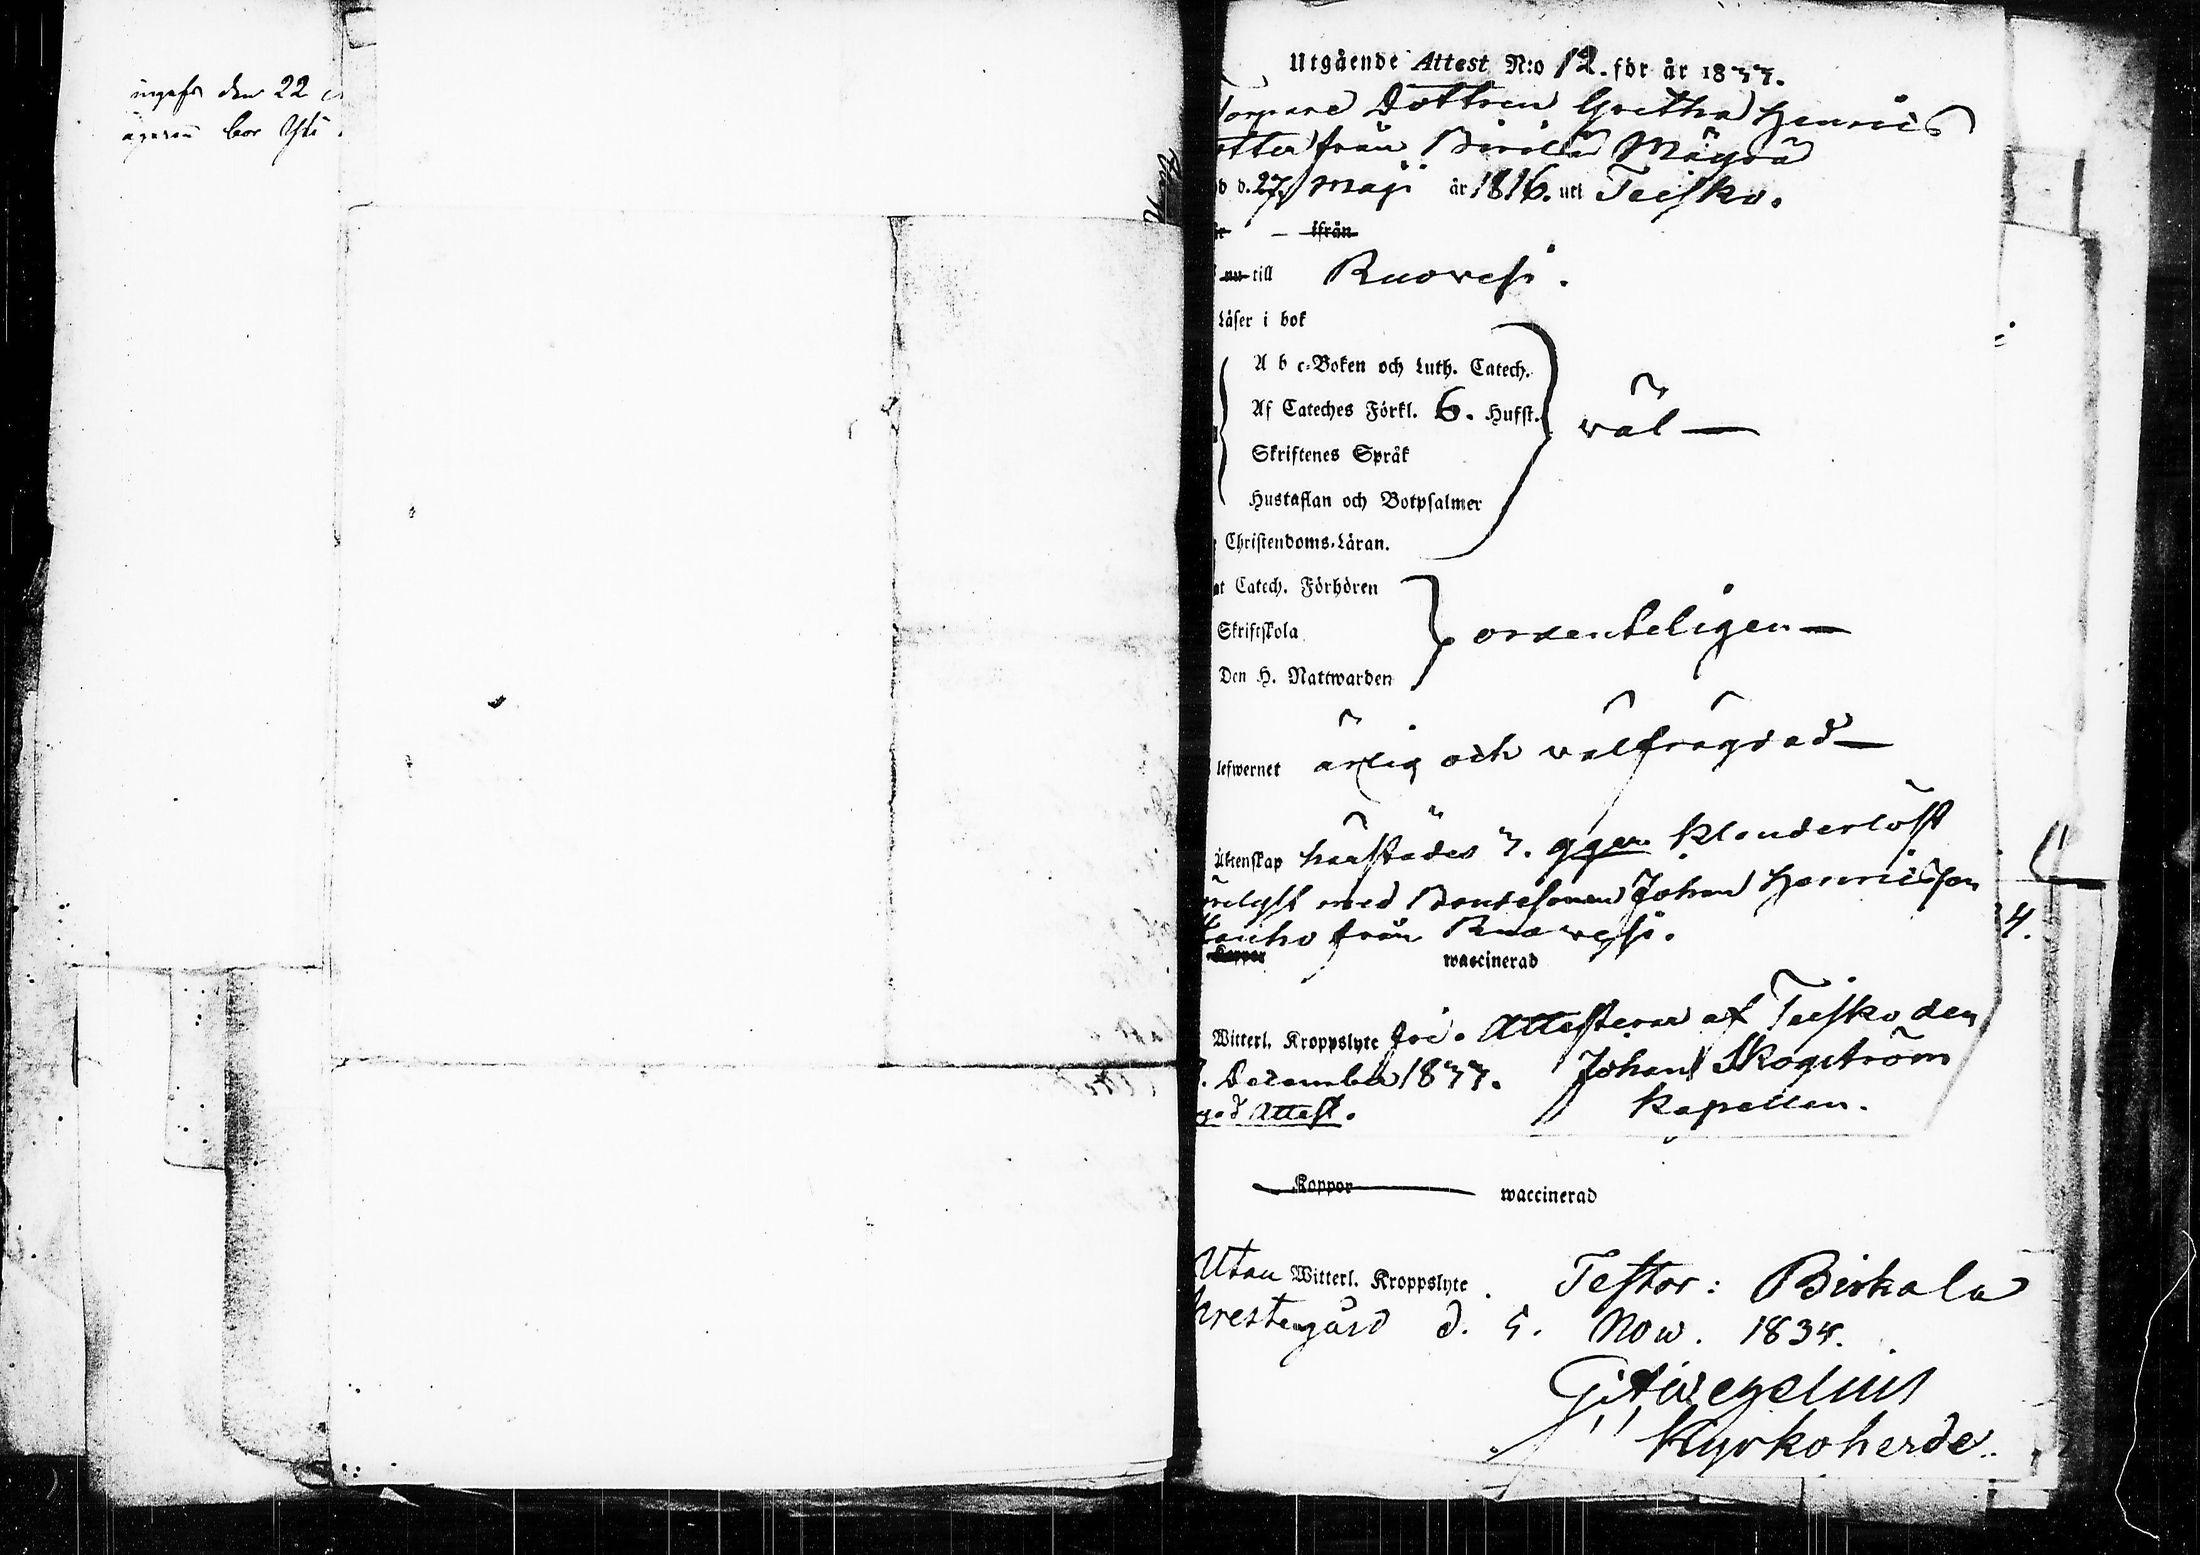 den 22
Utgående Attest N:o 12. för år 1833.
Dottren Gretha Henrics
från Birkala Mäyrä
d. 27 Maji år 1816. uti Teisko.
ifrån
nu till Ruovesi.
Läser i bok
A b c-Boken och Luth. Catech.
Af Cateches Förkl. 6. Hufst.
wäl
Skriftenes Språk
Hustaflan och Botpsalmer
Christendoms-Läran.
Catech. Förhören
Skriftskola ordenteligen
Den H. Nattwarden
lefwernet ärlig och wälfrägdad
Äktenskap härstädes 3. gger klanderlöst
med Bondesonen Johan Henricsson
från Ruowesi.
Koppor waccinerad
4.
Witterl. Kroppslyte fri. Attesterar af Teisko den
December 1833. Johan Skogström
Attest. Kapellan.
Koppor waccinerad
Utan Witterl. Kroppslyte. Testor: Birkala
Prestegård d. 5. Now. 1834.
Kyrkoherde.